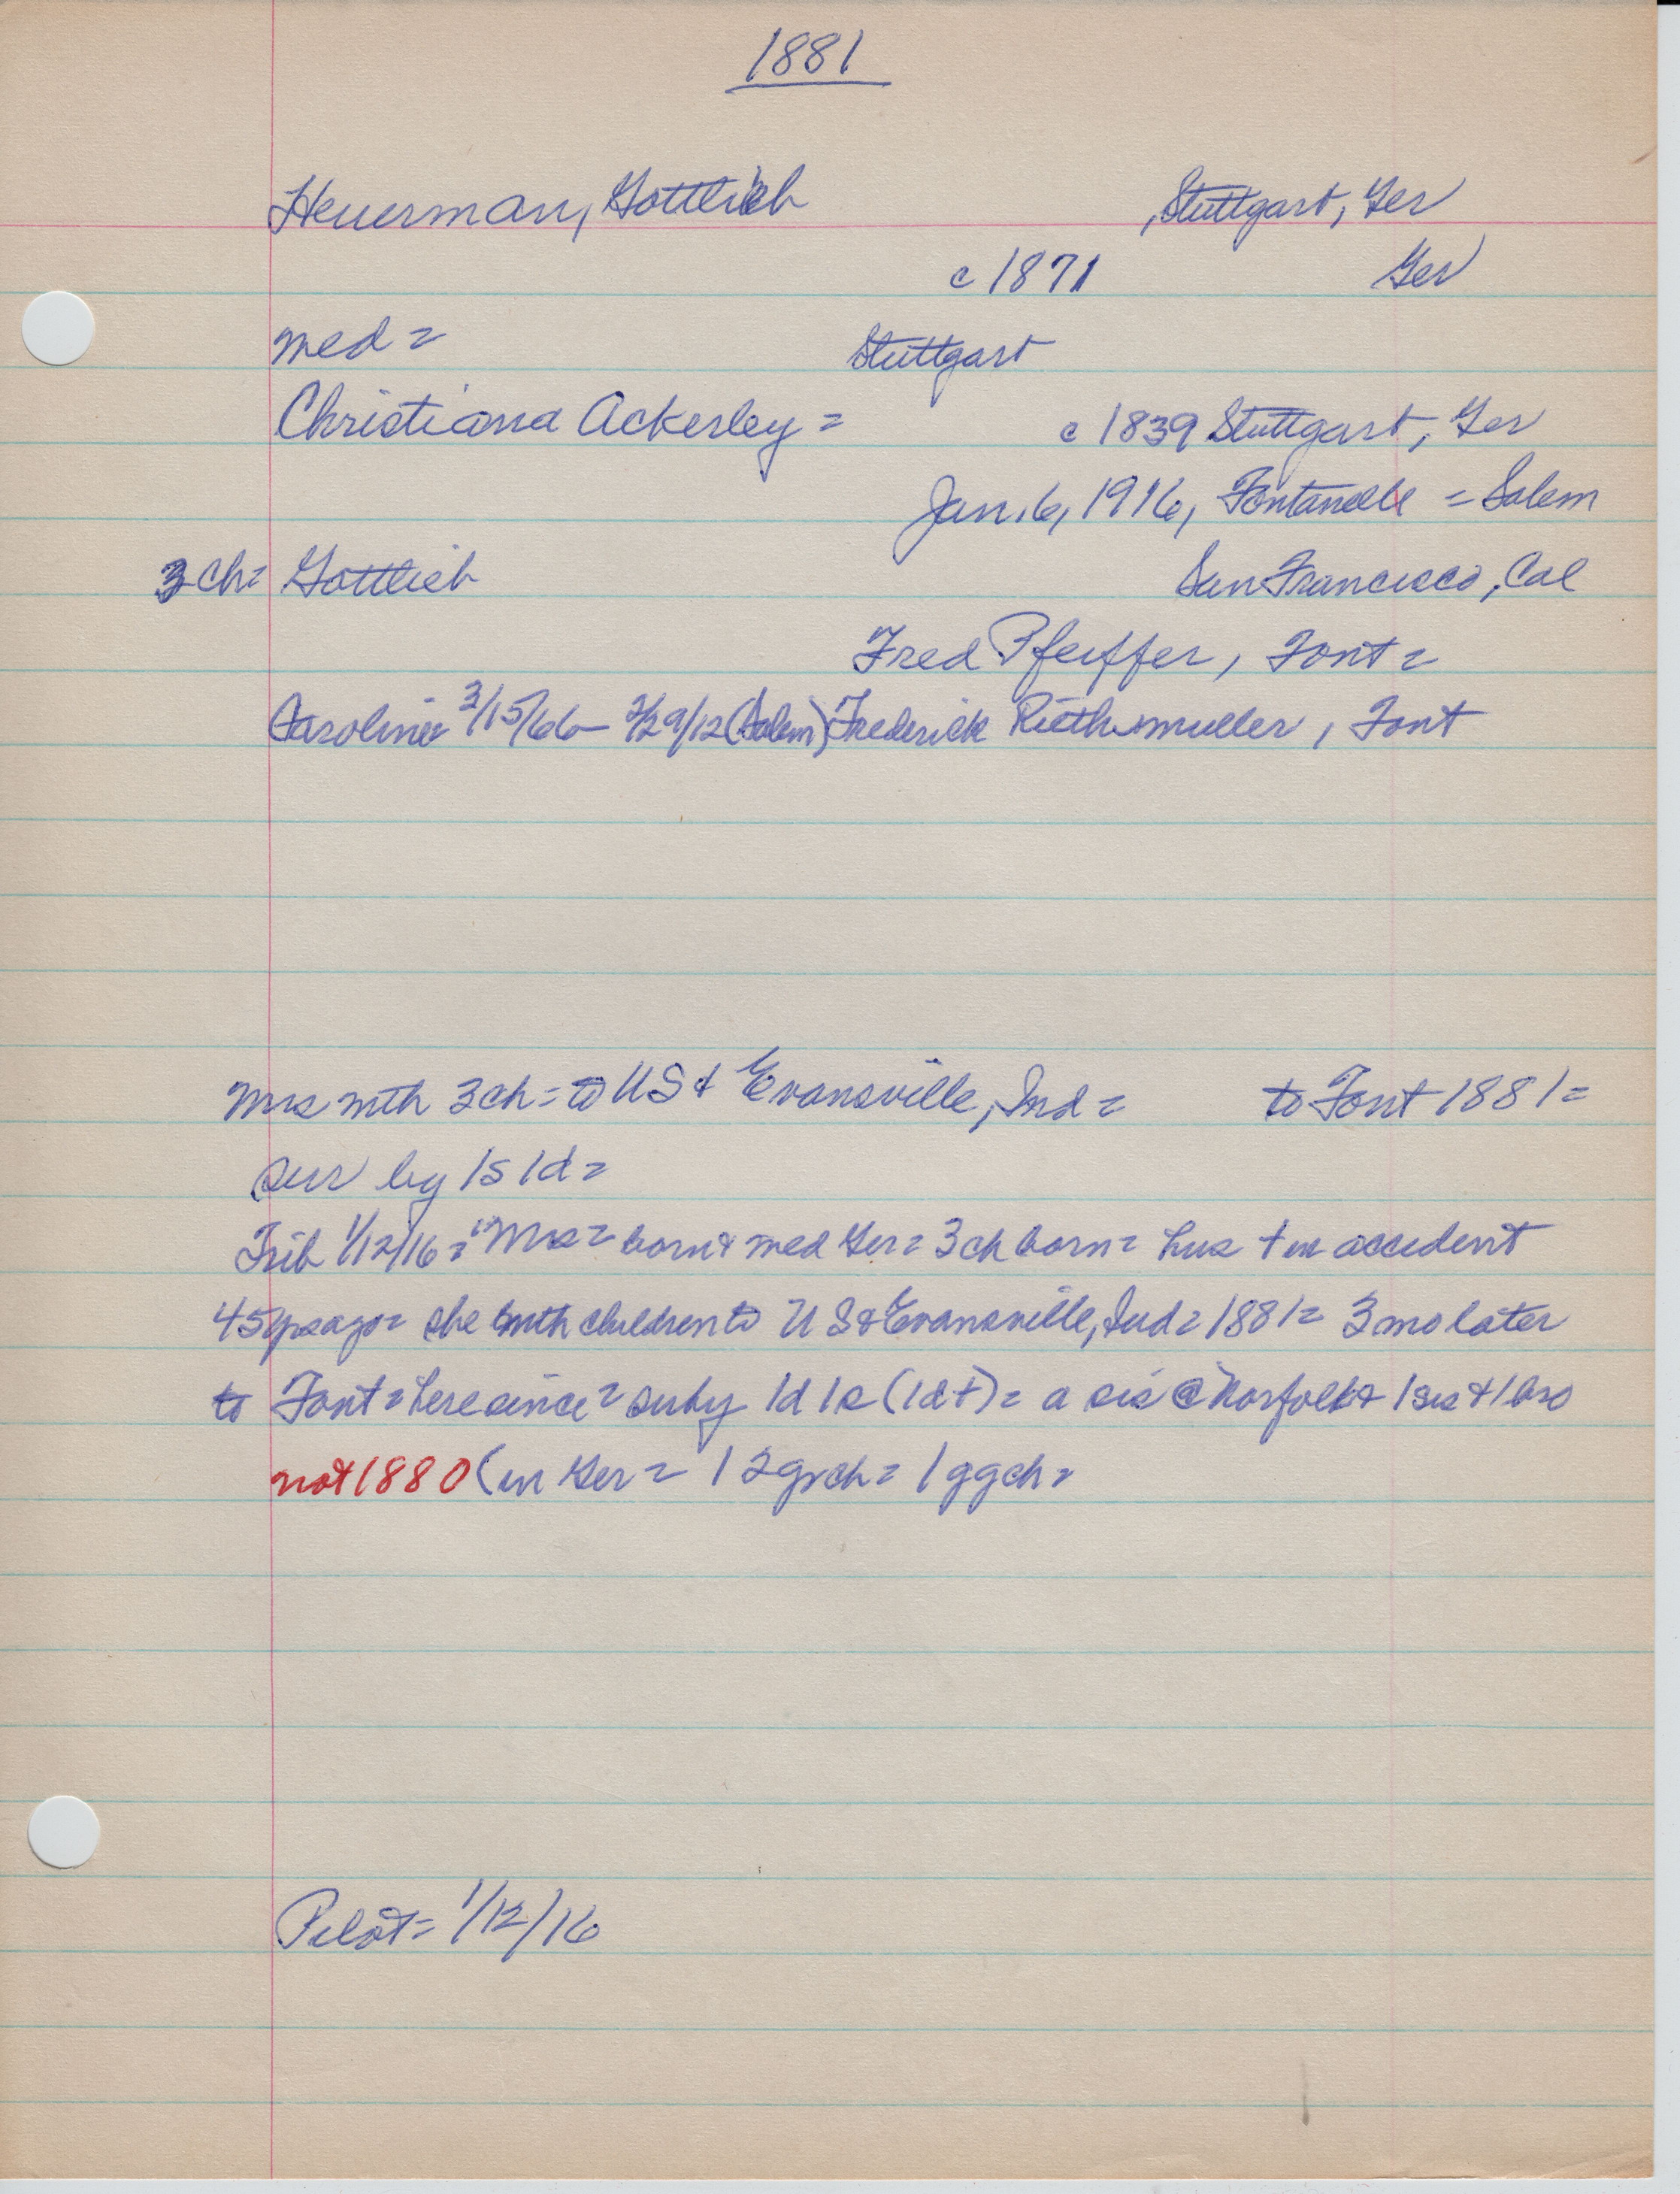 1881
Heuerman, Gottlieb , Stuttgart, Ger
c 1871 Ger
med = Stuttgart
Christiana Ackerley = c 1839 Stuttgart, Ger
Jan. 6, 1916, Fontanelle = Salem
3 ch = Gottlieb San Francisco, Cal
Fred Pfeiffer, Font =
Caroline 3/15/66 - 2/29/12 (Salem) Frederick Riethmuller, Font
Mrs with 3 ch = to US & Evansville, Ind = to Font 1881 =
sur by 1s 1d =
Trib 1/12/16 = "Mrs = born & med Ger = 3 ch born = hus † in accident
45 yrs ago = she with children to US & Evansville, Ind = 1881 = 3 mo later
to Font = here since = su by 1d 1s (1d †) = a sis @ Norfolk & 1 sis & 1 bro
not 1880 (in Ger = 12 grch = 1 ggch =
Pilot = 1/12/16